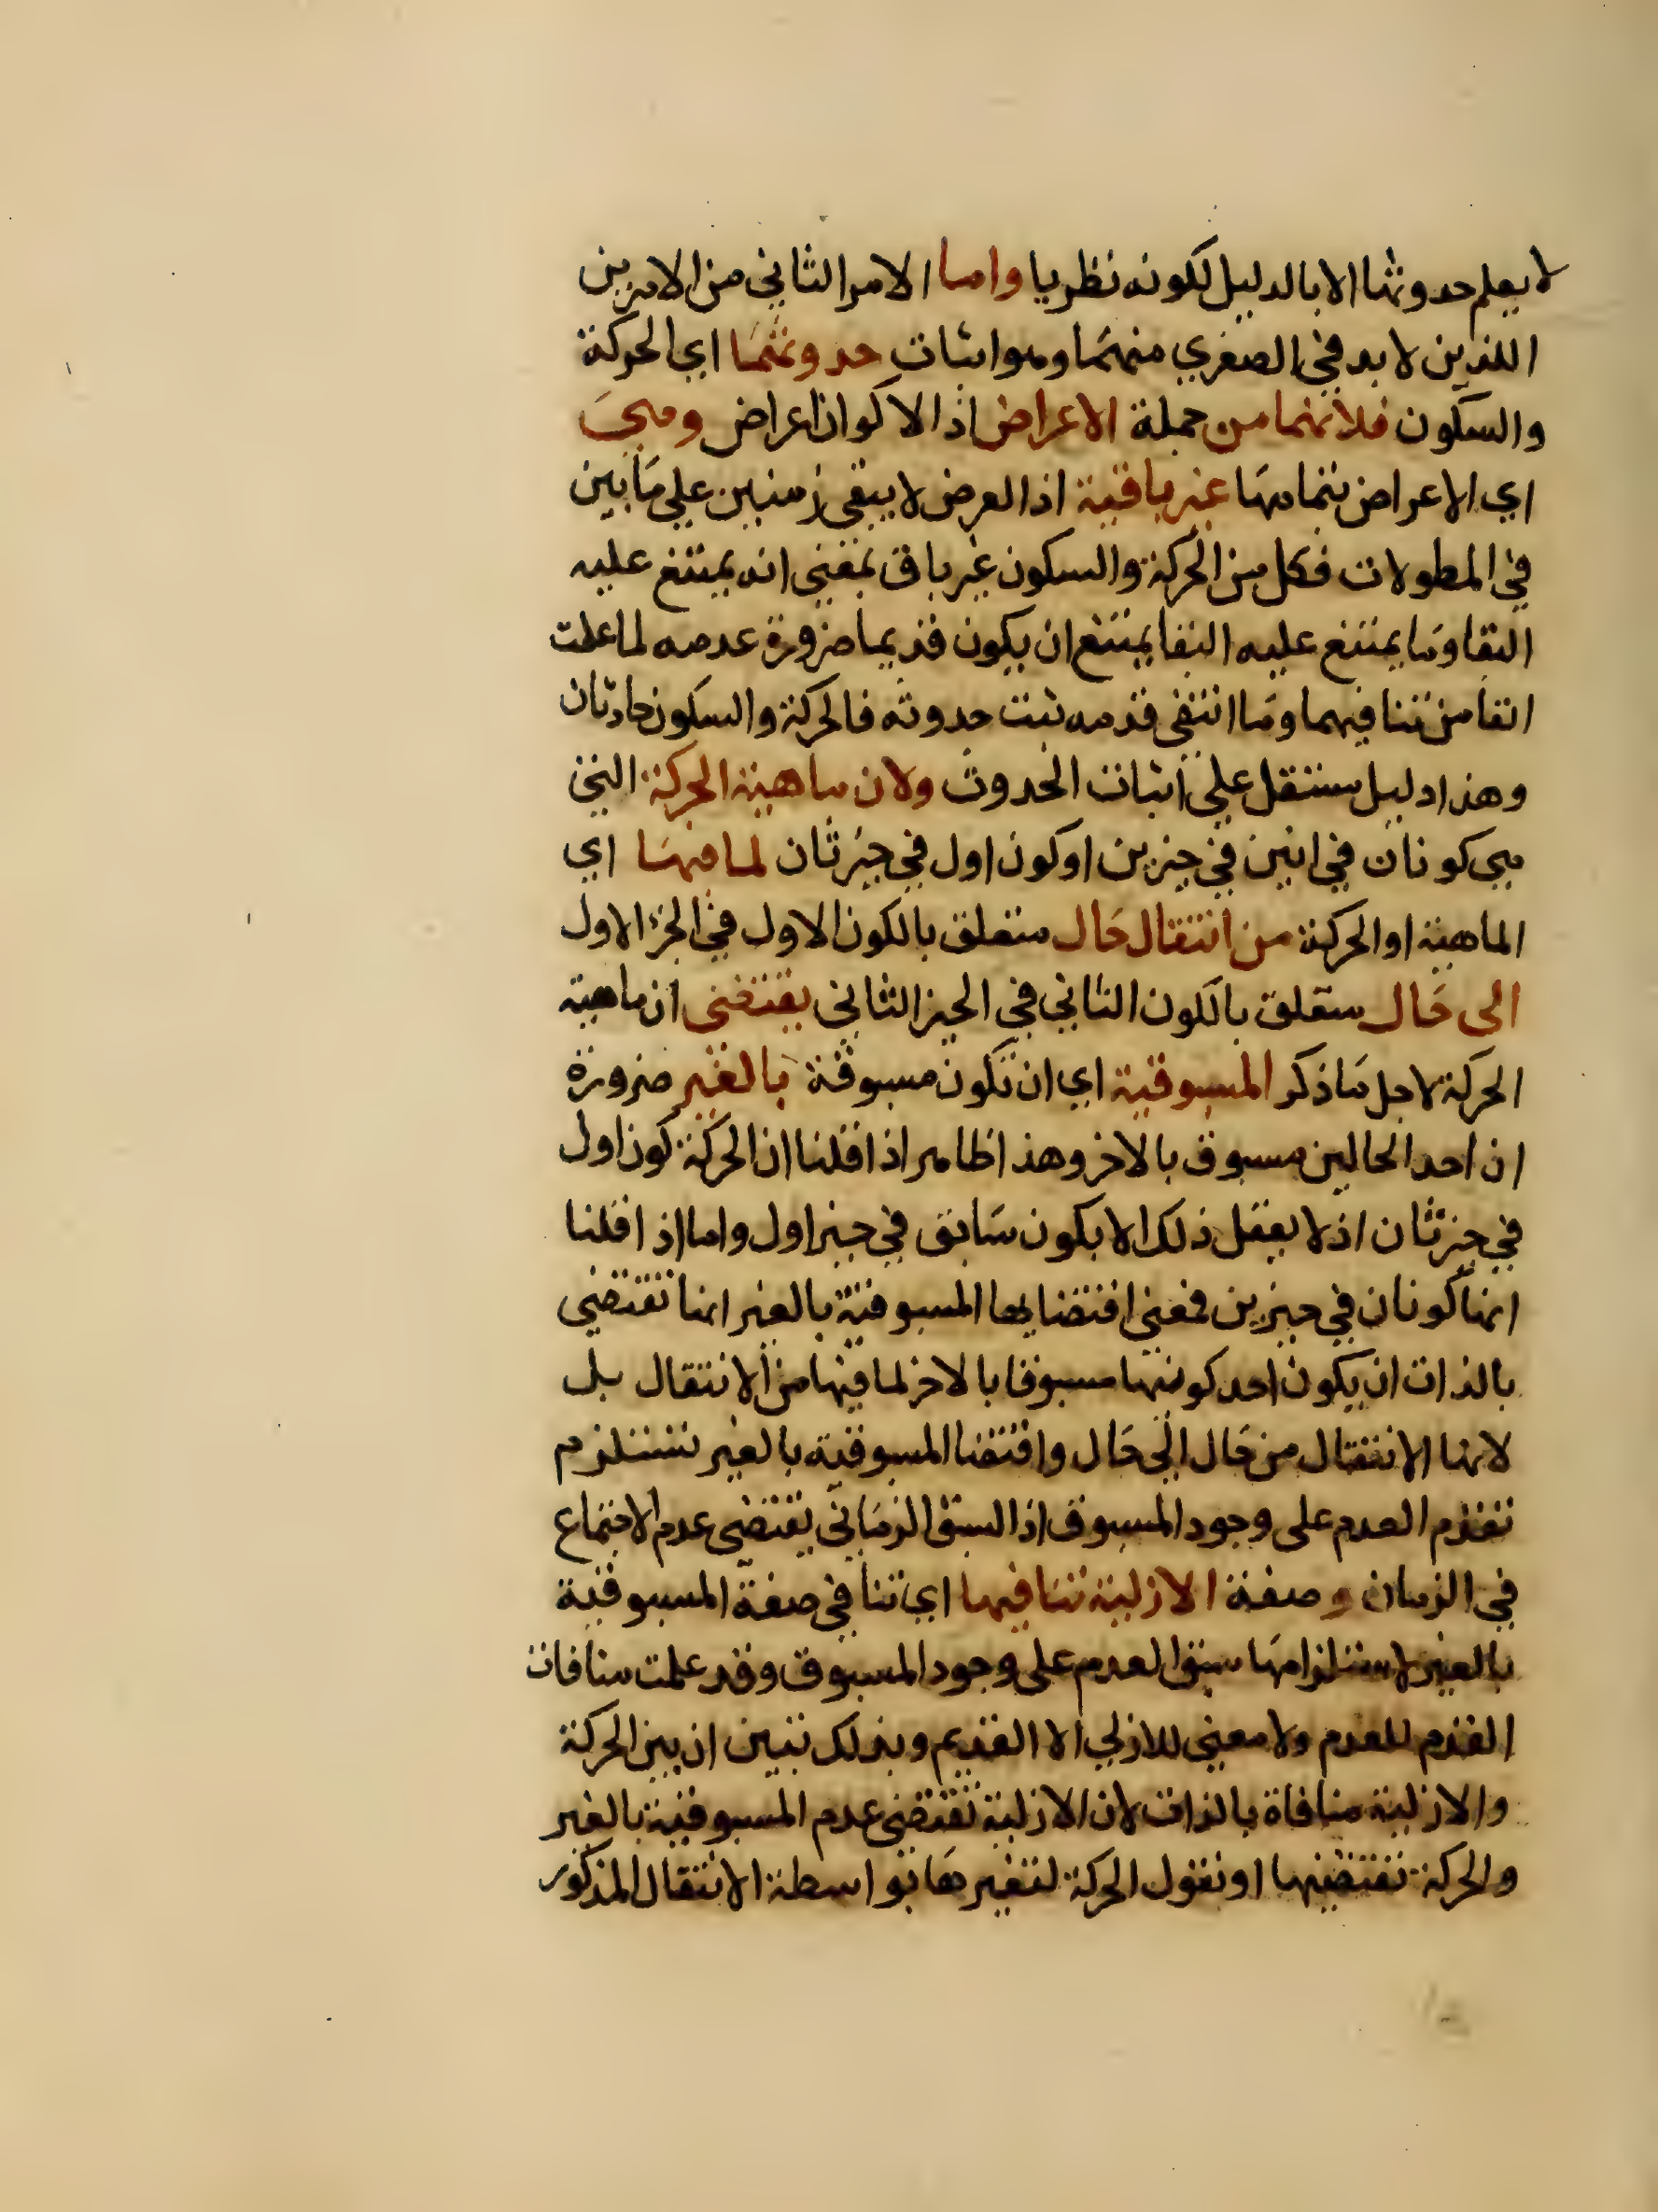 لا يعلم حدوثها الا بالدليل لكونه نظريا واما الامر الثاني من الامرين
اللذين لا بد في الصغري منهما وهو اثبات حدوثهما اي الحركة
والسكون فلانهما من جملة الاعراض اذ الاكوان اعراض وهي
اي الاعراض بتمامها غير باقية اذ العرض لا يبقي زمنين علي ما بين
في المطولات فكل من الحركة والسكون غير باق بمعني انه يمتنع عليه
البقا وما يمتنع عليه البقا يمتنع ان يكون قديما ضرورة عدمه لما علمت
انفا من تنافيهما وما انتفي قدمه ثبت حدوثه فالحركة والسكون حادثان
وهذا دليل مستقل علي اثبات الحدوث ولان ماهية الحركة التي
هي كونان في انين في حيزين او كون اول في حيز ثان لما فيها اي
الماهية او الحركة من انتقال حال متعلق بالكون الاول في الحيز الاول
الى حال متعلق بالكون الثاني في الحيز الثاني يقتضي ان ماهية
الحركة لاجل ما ذكر المسبوقية اي ان تكون مسبوقة بالغير ضرورة
ان احد الحالين مسبوق بالاخر وهذا ظاهر اذا قلنا ان الحركة كون اول
في حيز ثان اذ لا يعقل ذلك الا بكون سابق في حيز اول واما اذا قلنا
انها كونان في حيزين فمعني اقتضايها المسبوقية بالغير انها تقتضي
بالذات ان يكون احد كونيها مسبوقا بالاخر لما فيها من الانتقال بل
لانها الانتقال من حال الي حال واقتضا المسبوقية بالغير تستلزم
تقدم العدم على وجود المسبوق اذ السبق الزماني يقتضي عدم الاجتماع
في الزمان وصفة الازلية تنافيها اي تنافي صفة المسبوقية
بالغير لاستلزامها سبق العدم على وجود المسبوق وقد علمت منافات
القدم للعدم ولا معني للازلي الا القديم وبذلك تبين ان بين الحركة
والازلية منافاة بالذات لان الازلية تقتضي عدم المسبوقية بالغير
والحركة تقتضيها او نقول الحركة لتغيرها بواسطة الانتقال المذكور